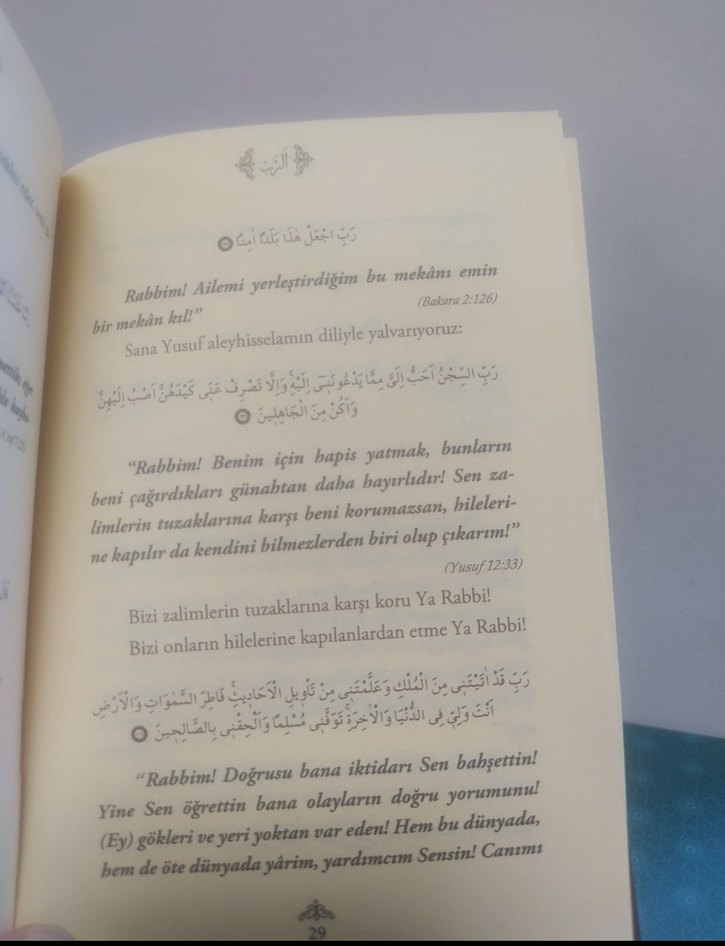 الرَّبّ
رَبِّ اجْعَلْ هٰذَا بَلَدًا اٰمِنًا
Rabbim! Ailemi yerleştirdiğim bu mekânı emin
bir mekân kıl!”
(Bakara 2:126)
Sana Yusuf aleyhisselamın diliyle yalvarıyoruz:
رَبِّ السِّجْنُ اَحَبُّ اِلَيَّ مِمَّا يَدْعُونَنٖٓي اِلَيْهِۚ وَاِلَّا تَصْرِفْ عَنّٖي كَيْدَهُنَّ اَصْبُ اِلَيْهِنَّ
وَاَكُنْ مِنَ الْجَاهِلٖينَ
“Rabbim! Benim için hapis yatmak, bunların
beni çağırdıkları günahtan daha hayırlıdır! Sen za-
limlerin tuzaklarına karşı beni korumazsan, hileleri-
ne kapılır da kendini bilmezlerden biri olup çıkarım!”
(Yusuf 12:33)
Bizi zalimlerin tuzaklarına karşı koru Ya Rabbi!
Bizi onların hilelerine kapılanlardan etme Ya Rabbi!
رَبِّ قَدْ اٰتَيْتَنٖي مِنَ الْمُلْكِ وَعَلَّمْتَنٖي مِنْ تَأْوٖيلِ الْاَحَادٖيثِۚ فَاطِرَ السَّمٰوَاتِ وَالْاَرْضِ
اَنْتَ وَلِيّٖ فِي الدُّنْيَا وَالْاٰخِرَةِۚ تَوَفَّنٖي مُسْلِمًا وَاَلْحِقْنٖي بِالصَّالِحٖينَ
“Rabbim! Doğrusu bana iktidarı Sen bahşettin!
Yine Sen öğrettin bana olayların doğru yorumunu!
(Ey) gökleri ve yeri yoktan var eden! Hem bu dünyada,
hem de öte dünyada yârim, yardımcım Sensin! Canımı
29